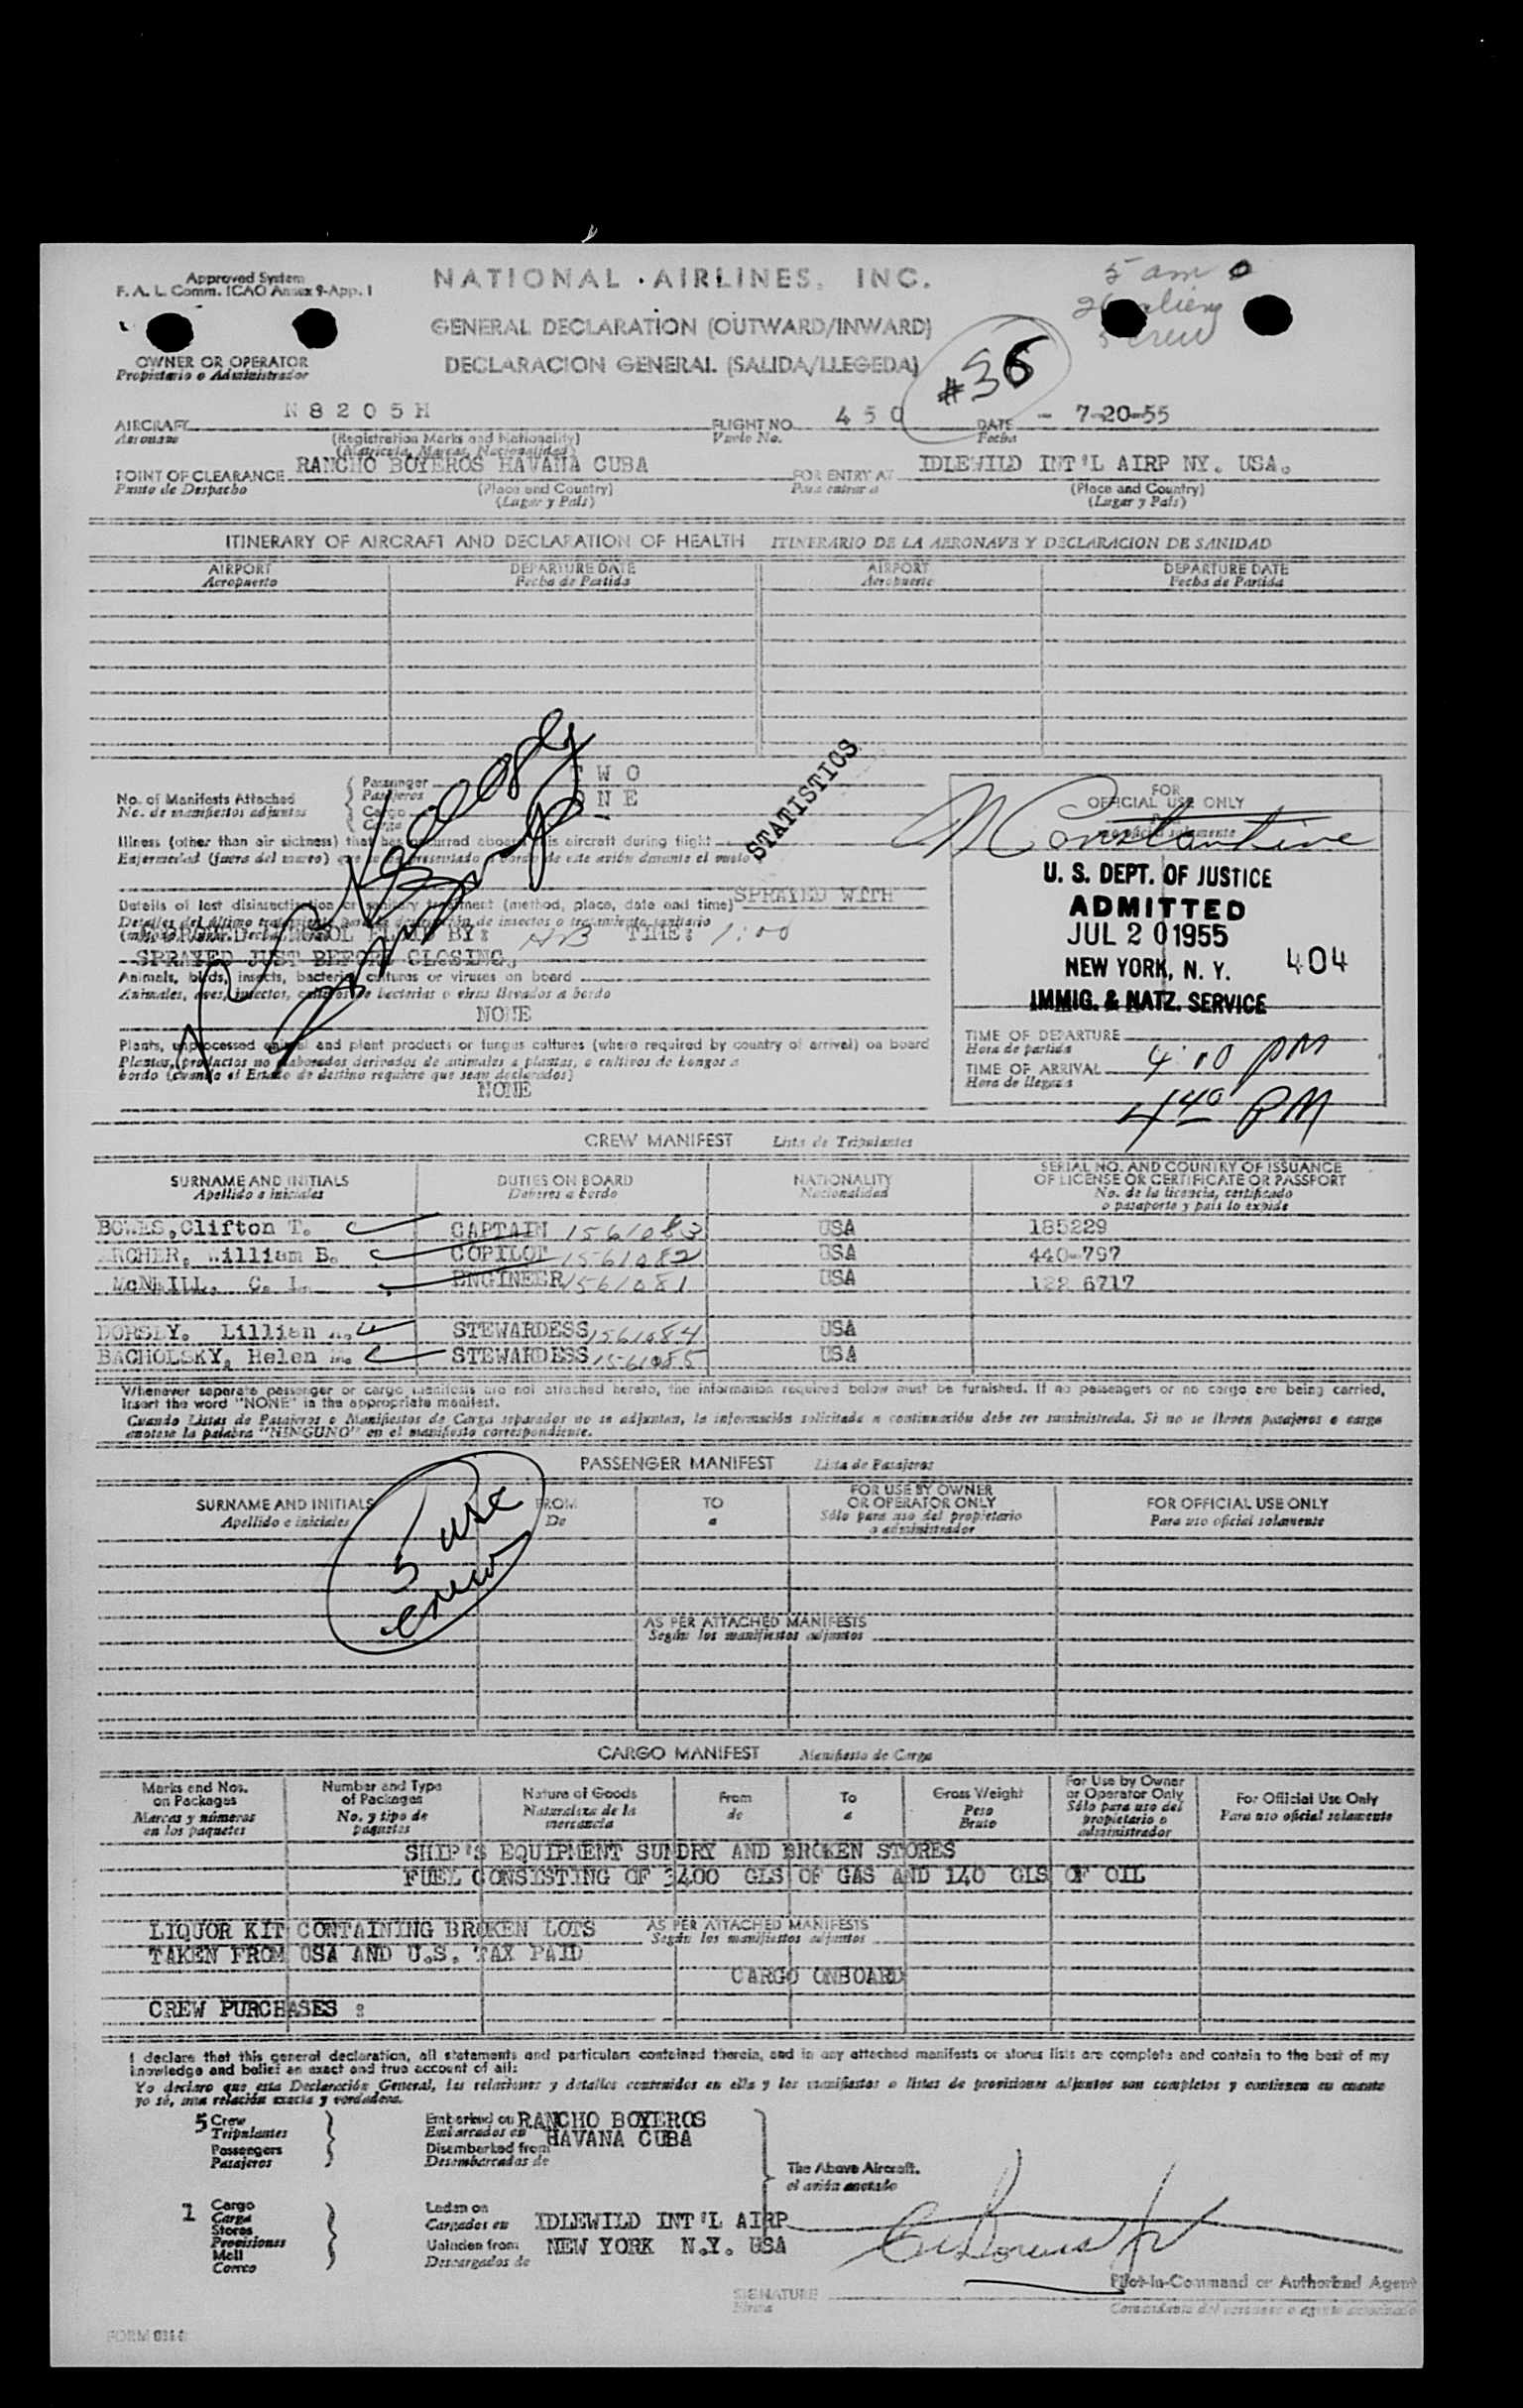 Approved System
F. A. L. Comm. ICAO Annex 9-App. 1
NATIONAL AIRLINES, INC.
5 am 0
crew
GENERAL DECLARATION (OUTWARD/INWARD)
DECLARACION GENERAL (SALIDA/LLEGEDA)
#36
OWNER OR OPERATOR
Propietario o Administrador
AIRCRAFT N8205H FLIGHT NO. 450 DATE - 7-20-55
Aeronave (Registration Marks and Nationality) Vuelo No. Fecha
(Matricula, Marcas, Nacionalidad)
POINT OF CLEARANCE RANCHO BOYEROS HAVANA CUBA FOR ENTRY AT IDLEWILD INT'L AIRP NY. USA.
Punto de Despacho (Place and Country) Para entrar a (Place and Country)
(Lugar y País) (Lugar y País)
ITINERARY OF AIRCRAFT AND DECLARATION OF HEALTH ITINERARIO DE LA AERONAVE Y DECLARACION DE SANIDAD
AIRPORT DEPARTURE DATE AIRPORT DEPARTURE DATE
Aeropuerto Fecha de Partida Aeropuerto Fecha de Partida
No. of Manifests Attached
No. de manifiestos adjuntos
Passenger TWO
Pasajeros
Cargo ONE
Carga
STATISTICS
Illness (other than air sickness) that has occurred aboard this aircraft during flight
Details of last disinsectization or sanitary treatment (method, place, date and time) SPRAYED WITH
BY: HB TIME: 1:00
SPRAYED JUST BEFORE CLOSING.
Animals, birds, insects, bacterial cultures or viruses on board
NONE
Plants, unprocessed animal and plant products or fungus cultures (where required by country of arrival) on board
Plantas, (productos no elaborados derivados de animales o plantas, o cultivos de hongos a
bordo (cuando el Estado de destino requiere que sean declarados)
NONE
FOR
OFFICIAL USE ONLY
Constantine
U. S. DEPT. OF JUSTICE
ADMITTED
JUL 20 1955
NEW YORK, N. Y. 404
IMMIG. & NATZ. SERVICE
TIME OF DEPARTURE
Hora de partida
4:00 PM
TIME OF ARRIVAL
Hora de llegada
4 40 PM
CREW MANIFEST Lista de Tripulantes
SURNAME AND INITIALS DUTIES ON BOARD NATIONALITY SERIAL NO. AND COUNTRY OF ISSUANCE
OF LICENSE OR CERTIFICATE OR PASSPORT
Apellido e iniciales Deberes a bordo Nacionalidad No. de la licencia, certificado
o pasaporte y país lo expide
BOWES, Clifton T. CAPTAIN 1561083 USA 185229
ARCHER, William B. COPILOT 1561082 USA 440-797
McNEILL, C. L. ENGINEER 1561081 USA 122 6717
DORSEY, Lillian STEWARDESS 1561084 USA
BACHOLSKY, Helen M. STEWARDESS 1561085 USA
Whenever separate passenger or cargo manifests are not attached hereto, the information required below must be furnished. If no passengers or no cargo are being carried,
insert the word "NONE" in the appropriate manifest.
Cuando Listas de Pasajeros o Manifiestos de Carga separados no se adjuntan, la información solicitada a continuación debe ser suministrada. Si no se lleven pasajeros o carga
anotese la palabra "NINGUNO" en el manifiesto correspondiente.
PASSENGER MANIFEST Lista de Pasajeros
SURNAME AND INITIALS FROM TO FOR USE BY OWNER
OR OPERATOR ONLY FOR OFFICIAL USE ONLY
Apellido e iniciales De a Sólo para uso del propietario
o administrador Para uso oficial solamente
5 USC
crew
AS PER ATTACHED MANIFESTS
Según los manifiestos adjuntos
CARGO MANIFEST Manifiesto de Carga
Marks and Nos.
on Packages
Marcas y números
en los paquetes
Number and Type
of Packages
No. y tipo de
paquetes
Nature of Goods
Naturaleza de la
mercancía
From
de
To
a
Gross Weight
Peso
Bruto
For Use by Owner
or Operator Only
Sólo para uso del
propietario o
administrador
For Official Use Only
Para uso oficial solamente
SHIP'S EQUIPMENT SUNDRY AND BROKEN STORES
FUEL CONSISTING OF 3400 GLS OF GAS AND 140 GLS OF OIL
LIQUOR KIT CONTAINING BROKEN LOTS AS PER ATTACHED MANIFESTS
Según los manifiestos adjuntos
TAKEN FROM USA AND U.S. TAX PAID
CARGO ONBOARD
CREW PURCHASES :
I declare that this general declaration, all statements and particulars contained therein, and in any attached manifests or stores lists are complete and contain to the best of my
knowledge and belief an exact and true account of all:
Yo declaro que esta Declaración General, las relaciones y detalles contenidos en ella y los manifiestos o listas de provisiones adjuntos son completos y contienen en cuanto
yo sé, una relación exacta y verdadera.
5 Crew
Tripulantes
Passengers
Pasajeros
Embarked on RANCHO BOYEROS
Embarcados en HAVANA CUBA
Disembarked from
Desembarcados de
The Above Aircraft.
el avión anotado
1 Cargo
Carga
Stores
Provisiones
Mail
Correo
Laden on
Cargados en IDLEWILD INT'L AIRP
Unladen from NEW YORK N.Y. USA
Descargados de
Pilot-in-Command or Authorized Agent
SIGNATURE
Firma